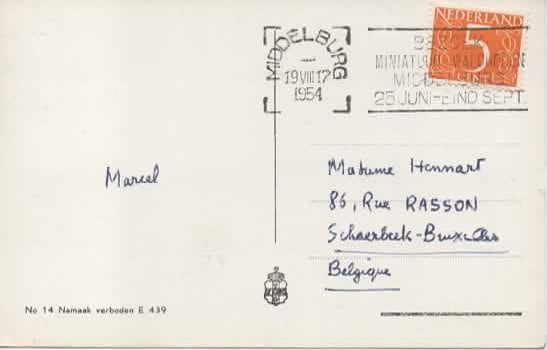 NEDERLAND
5
CENT
MIDDELBURG
19 VIII 17
1954
MINIATUUR WALCHEREN
MIDDELBURG
25 JUNI-EIND SEPT.
Marcel
Madame Hennart
86, Rue RASSON
Schaerbeek-Bruxelles
Belgique
No 14 Namaak verboden E 439